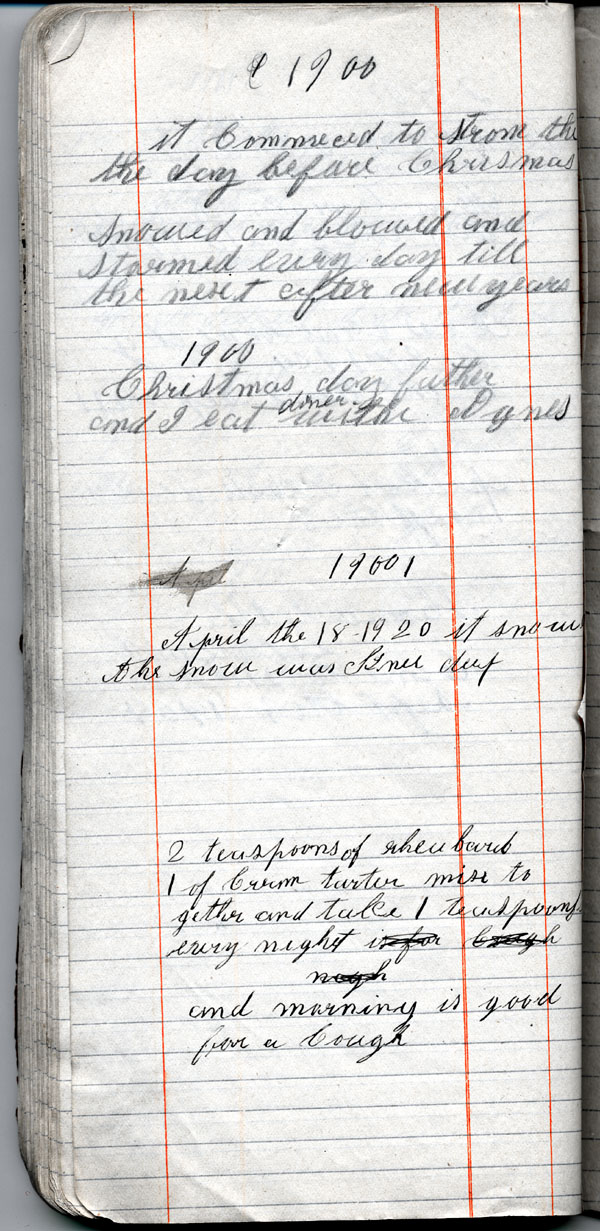 1900
it Commeced to strom the
the day before Chrismas
snowed and blowed and
stormed every day till
the next after new years
1900
Christmas day father
diner
and I eat withe Agnes
19001
April the 18-19 20 it snow
the snow was knee deep
2 teaspoons of rheubarb
1 of Crem tarter mix to
gether and take 1 teaspoonful
every night is for cough
nigh
and morning is good
for a Cough